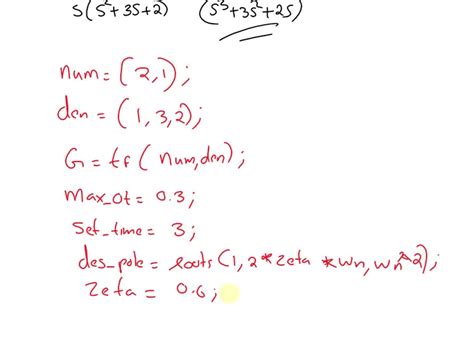 s(s²+3s+2) (s³+3s²+2s)
num = (2,1);
den = (1,3,2);
G = tf( num,den);
max_ot = 0.3;
set_time = 3;
des_pole = roots(1, 2*zeta *wn, wn^2);
zeta = 0.6;